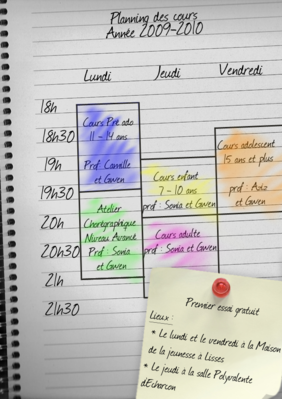 Planning des cours
Année 2009-2010
Lundi
Jeudi
Vendredi
18h
18h30
19h
19h30
20h
20h30
21h
21h30
Cours Pré ado
11 - 14 ans
Prof: Camille
et Gwen
Atelier
Chorégraphique
Niveau Avancé
Prof : Sonia
et Gwen
Cours enfant
7 - 10 ans
prof : Sonia et Gwen
Cours adulte
prof : Sonia et Gwen
Cours adolescent
15 ans et plus
prof : Aziz
et Gwen
Premier essai gratuit
Lieux :
* Le lundi et le vendredi à la Maison
de la jeunesse à Lisses
* Le jeudi à la salle Polyvalente
d'Echarcon